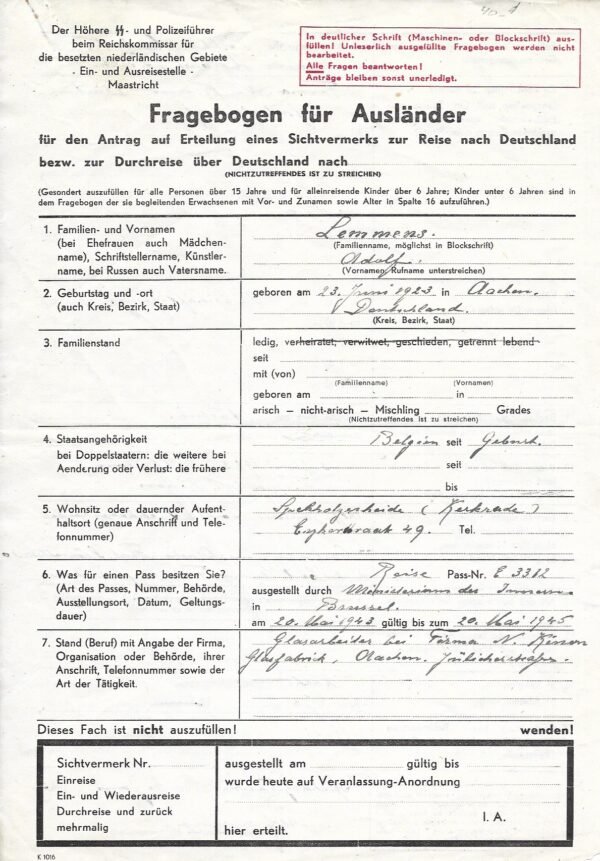 Der Höhere ᛋᛋ- und Polizeiführer
beim Reichskommissar für
die besetzten niederländischen Gebiete
- Ein- und Ausreisestelle -
Maastricht
In deutlicher Schrift (Maschinen- oder Blockschrift) aus-
füllen! Unleserlich ausgefüllte Fragebogen werden nicht
bearbeitet.
Alle Fragen beantworten!
Anträge bleiben sonst unerledigt.
Fragebogen für Ausländer
für den Antrag auf Erteilung eines Sichtvermerks zur Reise nach Deutschland
bezw. zur Durchreise über Deutschland nach
(NICHTZUTREFFENDES IST ZU STREICHEN)
(Gesondert auszufüllen für alle Personen über 15 Jahre und für alleinreisende Kinder über 6 Jahre; Kinder unter 6 Jahren sind in
dem Fragebogen der sie begleitenden Erwachsenen mit Vor- und Zunamen sowie Alter in Spalte 16 aufzuführen.)
1. Familien- und Vornamen
(bei Ehefrauen auch Mädchen-
name), Schriftstellername, Künstler-
name, bei Russen auch Vatersname.
Lemmens.
(Familienname, möglichst in Blockschrift)
Adolf.
(Vornamen, Rufname unterstreichen)
2. Geburtstag und -ort
(auch Kreis, Bezirk, Staat)
geboren am 23. Juni 1923 in Aachen.
Deutschland.
(Kreis, Bezirk, Staat)
3. Familienstand
ledig, verheiratet, verwitwet, geschieden, getrennt lebend
seit
mit (von)
(Familienname) (Vornamen)
geboren am in
arisch – nicht-arisch – Mischling Grades
(Nichtzutreffendes ist zu streichen)
4. Staatsangehörigkeit
bei Doppelstaatern: die weitere bei
Aenderung oder Verlust: die frühere
Belgien seit Geburt.
seit
bis
5. Wohnsitz oder dauernder Aufent-
haltsort (genaue Anschrift und Tele-
fonnummer)
Spekholzerheide (Kerkrade)
49. Tel.
6. Was für einen Pass besitzen Sie?
(Art des Passes, Nummer, Behörde,
Ausstellungsort, Datum, Geltungs-
dauer)
Reise Pass-Nr. E 3312
ausgestellt durch Ministerium des Innern
in Brussel.
am 20. Mai 1943 gültig bis zum 20. Mai 1945
7. Stand (Beruf) mit Angabe der Firma,
Organisation oder Behörde, ihrer
Anschrift, Telefonnummer sowie der
Art der Tätigkeit.
Glasarbeider bei Firma N.
Glasfabrick, Aachen.
Dieses Fach ist nicht auszufüllen!
wenden!
Sichtvermerk Nr.
Einreise
Ein- und Wiederausreise
Durchreise und zurück
mehrmalig
ausgestellt am gültig bis
wurde heute auf Veranlassung-Anordnung
I. A.
hier erteilt.
K 1016